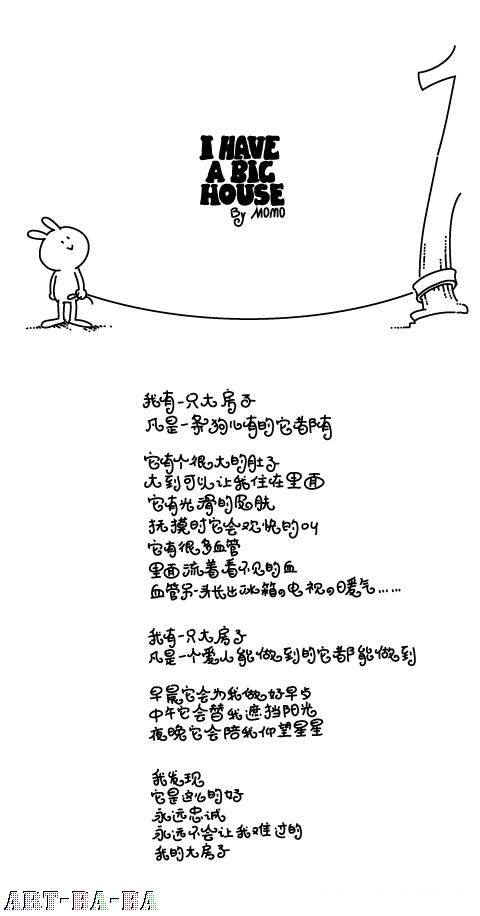 I HAVE
A BIG
HOUSE
By MOMO
我有一只大房子
凡是一条狗儿有的它都有
它有个很大的肚子
大到可以让我住在里面
它有光滑的皮肤
抚摸时它会欢快的叫
它有很多血管
里面流着看不见的血
血管另一头长出冰箱。电视。暖气……
我有一只大房子
凡是一个爱人能做到的它都能做到
早晨它会为我做好早点
中午它会替我遮挡阳光
夜晚它会陪我仰望星星
我发现
它是这么的好
永远忠诚
永远不会让我难过的
我的大房子
ART-BA-BA